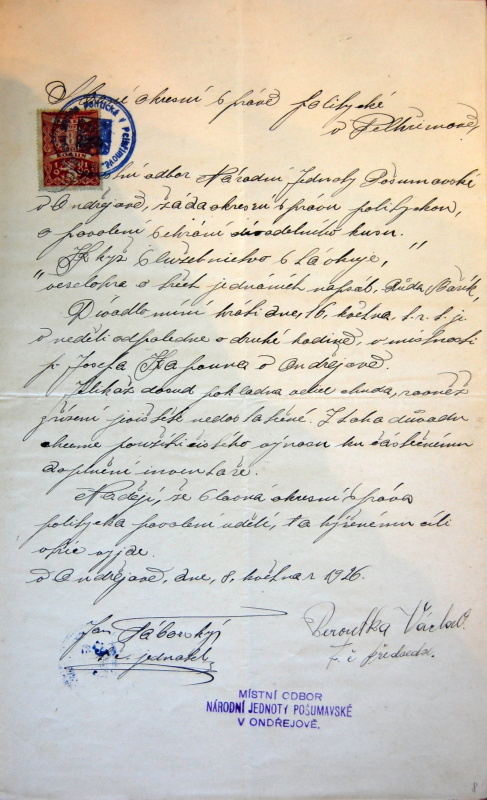 Slavné okresní správě politycké
v Pelhřimově,
POLITICKÁ V PELHŘIMOVĚ
odbor Národní Jednoty Pošumavské
v Ondřejově, žádá okresní správu polityckou,
o povolení sehrání divadelního kusu.
"Když služebnictvo stávkuje,"
veselohra o třech jednáních napsal. Růda, Mařík,
Divadlo míní hráti dne, 16. května, t. r. t. j.
v neděli odpoledne o druhé hodině, v místnosti
p. Josefa v Ondřejově.
Jelikož dosud pokladna velice chudá, rovněž
zřízení jeviště nedostatečné. Z toho důvodu
chceme použíti čistého výnosu ku částečnému
doplnění inventáře.
Nadějí, že slavná okresní správa
politycká povolení udělí, ta kýženému cíli
vyjde.
v Ondřejově, dne, 8. květnar 1926.
Jan Táborský
t. č. jednatel
Peroutka Václav.
t. č. předseda.
MÍSTNÍ ODBOR
NÁRODNÍ JEDNOTY POŠUMAVSKÉ
V ONDŘEJOVĚ.
8